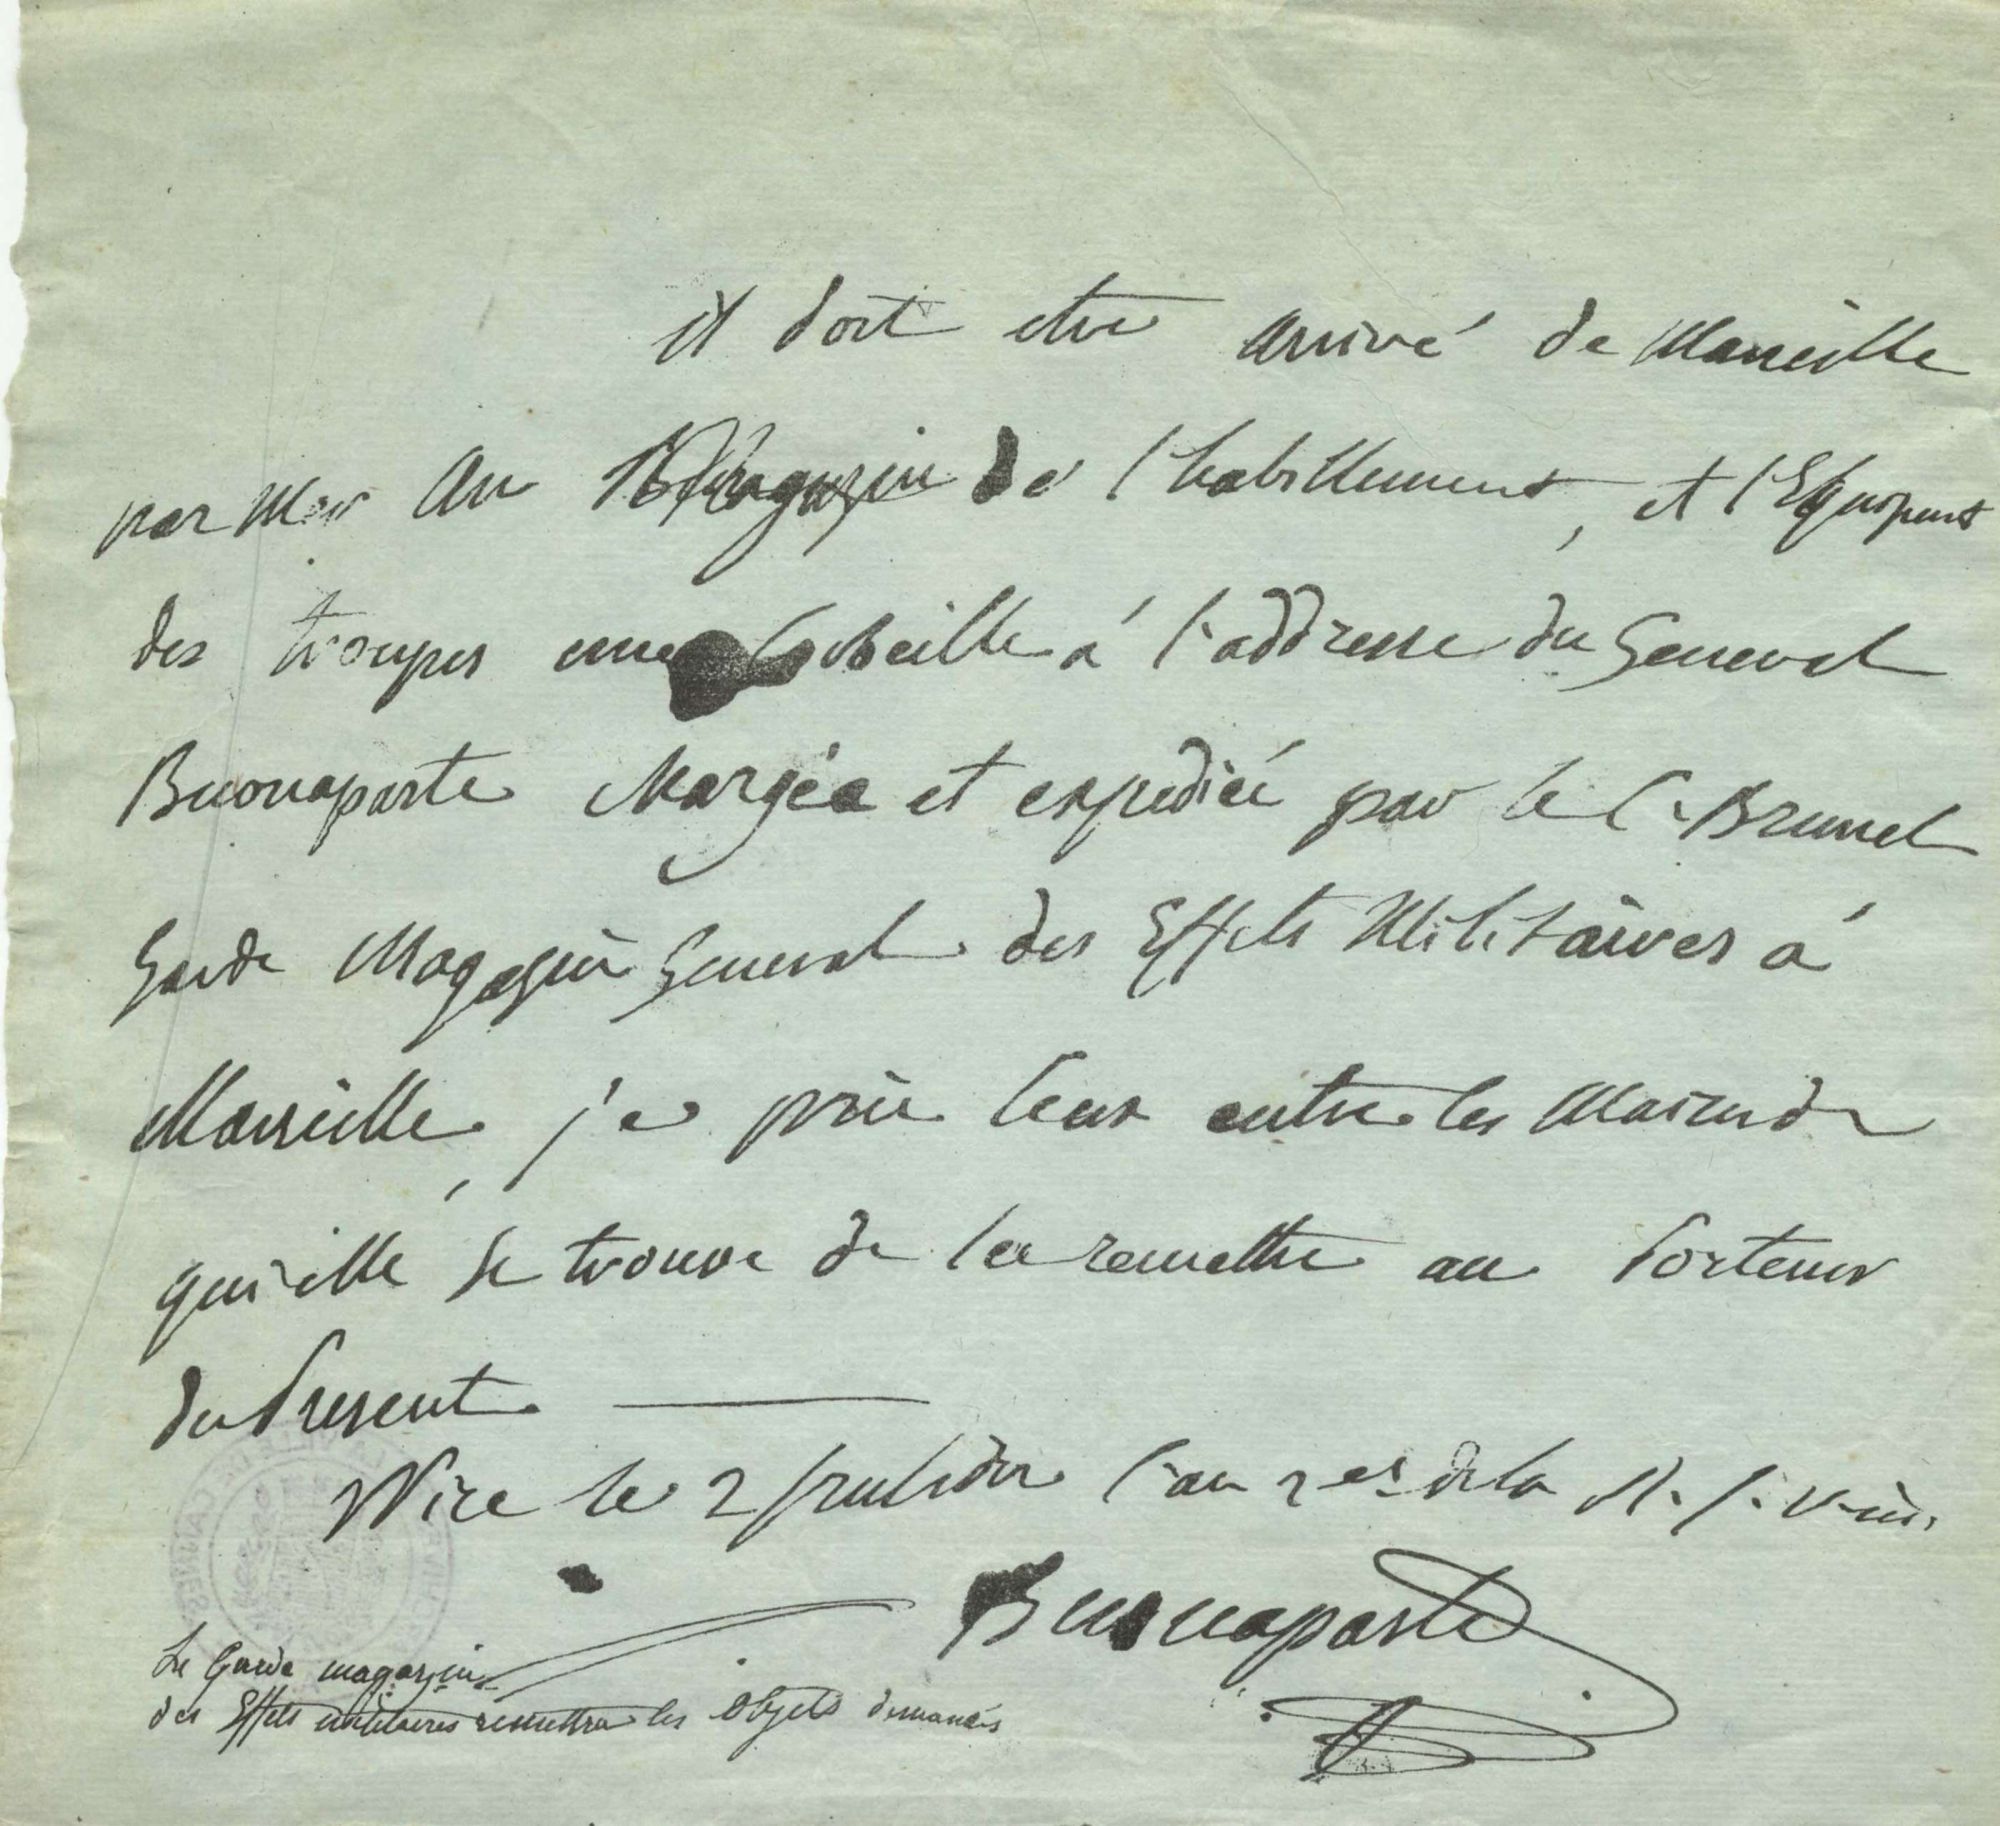 il doit etre arrivé de Marseille
par Mer au Magazin de l'habillement, et l'Equipent
des troupes une Corbeille á l'addresse du General
Buonaparte Chargée et expediée par le C. Brunel
Garde Magazin General des Effets Militaires á
Marseille, je prie Ceux entre les Mains de
qui elle se trouve de la remettre au Porteur
du Present.
Nice le 2 fructidor l'an 2e de la R.
Buonaparte
Le Garde magazin
des Effets militaires remettra les objets demandés